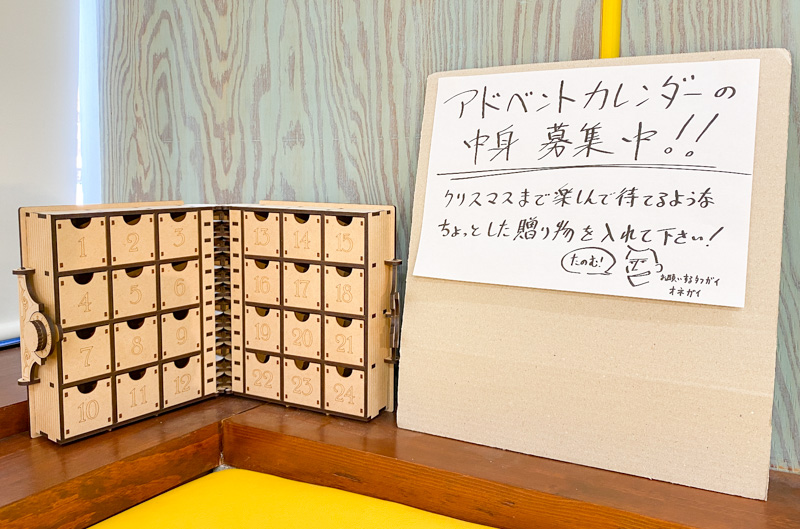 1 2 3
4 5 6
7 8 9
10 11 12
13 14 15
16 17 18
19 20 21
22 23 24
アドベントカレンダーの
中身 募集中!!
クリスマスまで楽しんで待てるような
ちょっとした贈り物を入れて下さい!
たのむ!
お願いする
オネガイ